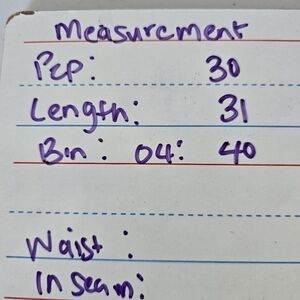 Measurement
Pep: 30
Length: 31
Bin: 04: 40
Waist:
Inseam: